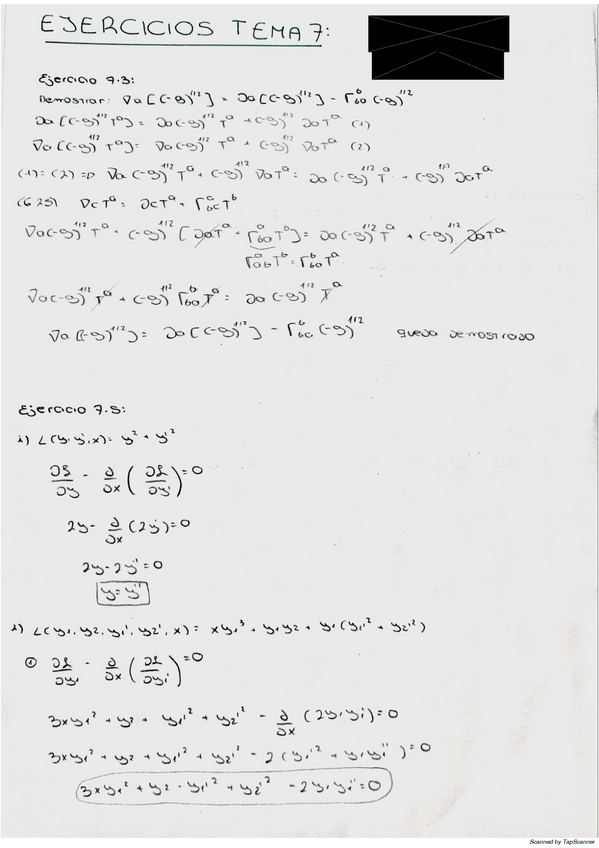 EJERCICIOS TEMA 7:
Ejercicio 7.3:
Demostrar: ∇a[(-g)^1/2] = ∂a[(-g)^1/2] - Γ^b_ba (-g)^1/2
∂a[(-g)^1/2 T^a] = ∂a(-g)^1/2 T^a + (-g)^1/2 ∂aT^a (1)
∇a[(-g)^1/2 T^a] = ∇a(-g)^1/2 T^a + (-g)^1/2 ∇aT^a (2)
(1)=(2) => ∇a(-g)^1/2 T^a + (-g)^1/2 ∇aT^a = ∂a(-g)^1/2 T^a + (-g)^1/2 ∂aT^a
(6.25) ∇cT^a = ∂cT^a + Γ^a_bc T^b
∇a(-g)^1/2 T^a + (-g)^1/2 [∂aT^a + Γ^a_ba T^b] = ∂a(-g)^1/2 T^a + (-g)^1/2 ∂aT^a
Γ^a_ab T^b = Γ^b_ba T^a
∇a(-g)^1/2 T^a + (-g)^1/2 Γ^b_ba T^a = ∂a(-g)^1/2 T^a
∇a[(-g)^1/2] = ∂a[(-g)^1/2] - Γ^b_ba (-g)^1/2 queda demostrado
Ejercicio 7.5:
1) L(y, y', x) = y² + y'²
∂L/∂y - ∂/∂x (∂L/∂y') = 0
2y - ∂/∂x (2y') = 0
2y - 2y'' = 0
y = y''
2) L(y1, y2, y1', y2', x) = xy1³ + y1y2 + y1(y1'² + y2'²)
① ∂L/∂y1 - ∂/∂x (∂L/∂y1') = 0
3xy1² + y2 + y1'² + y2'² - ∂/∂x (2y1y1') = 0
3xy1² + y2 + y1'² + y2'² - 2(y1'² + y1y1'') = 0
3xy1² + y2 - y1'² + y2'² - 2y1y1'' = 0
Scanned by TapScanner